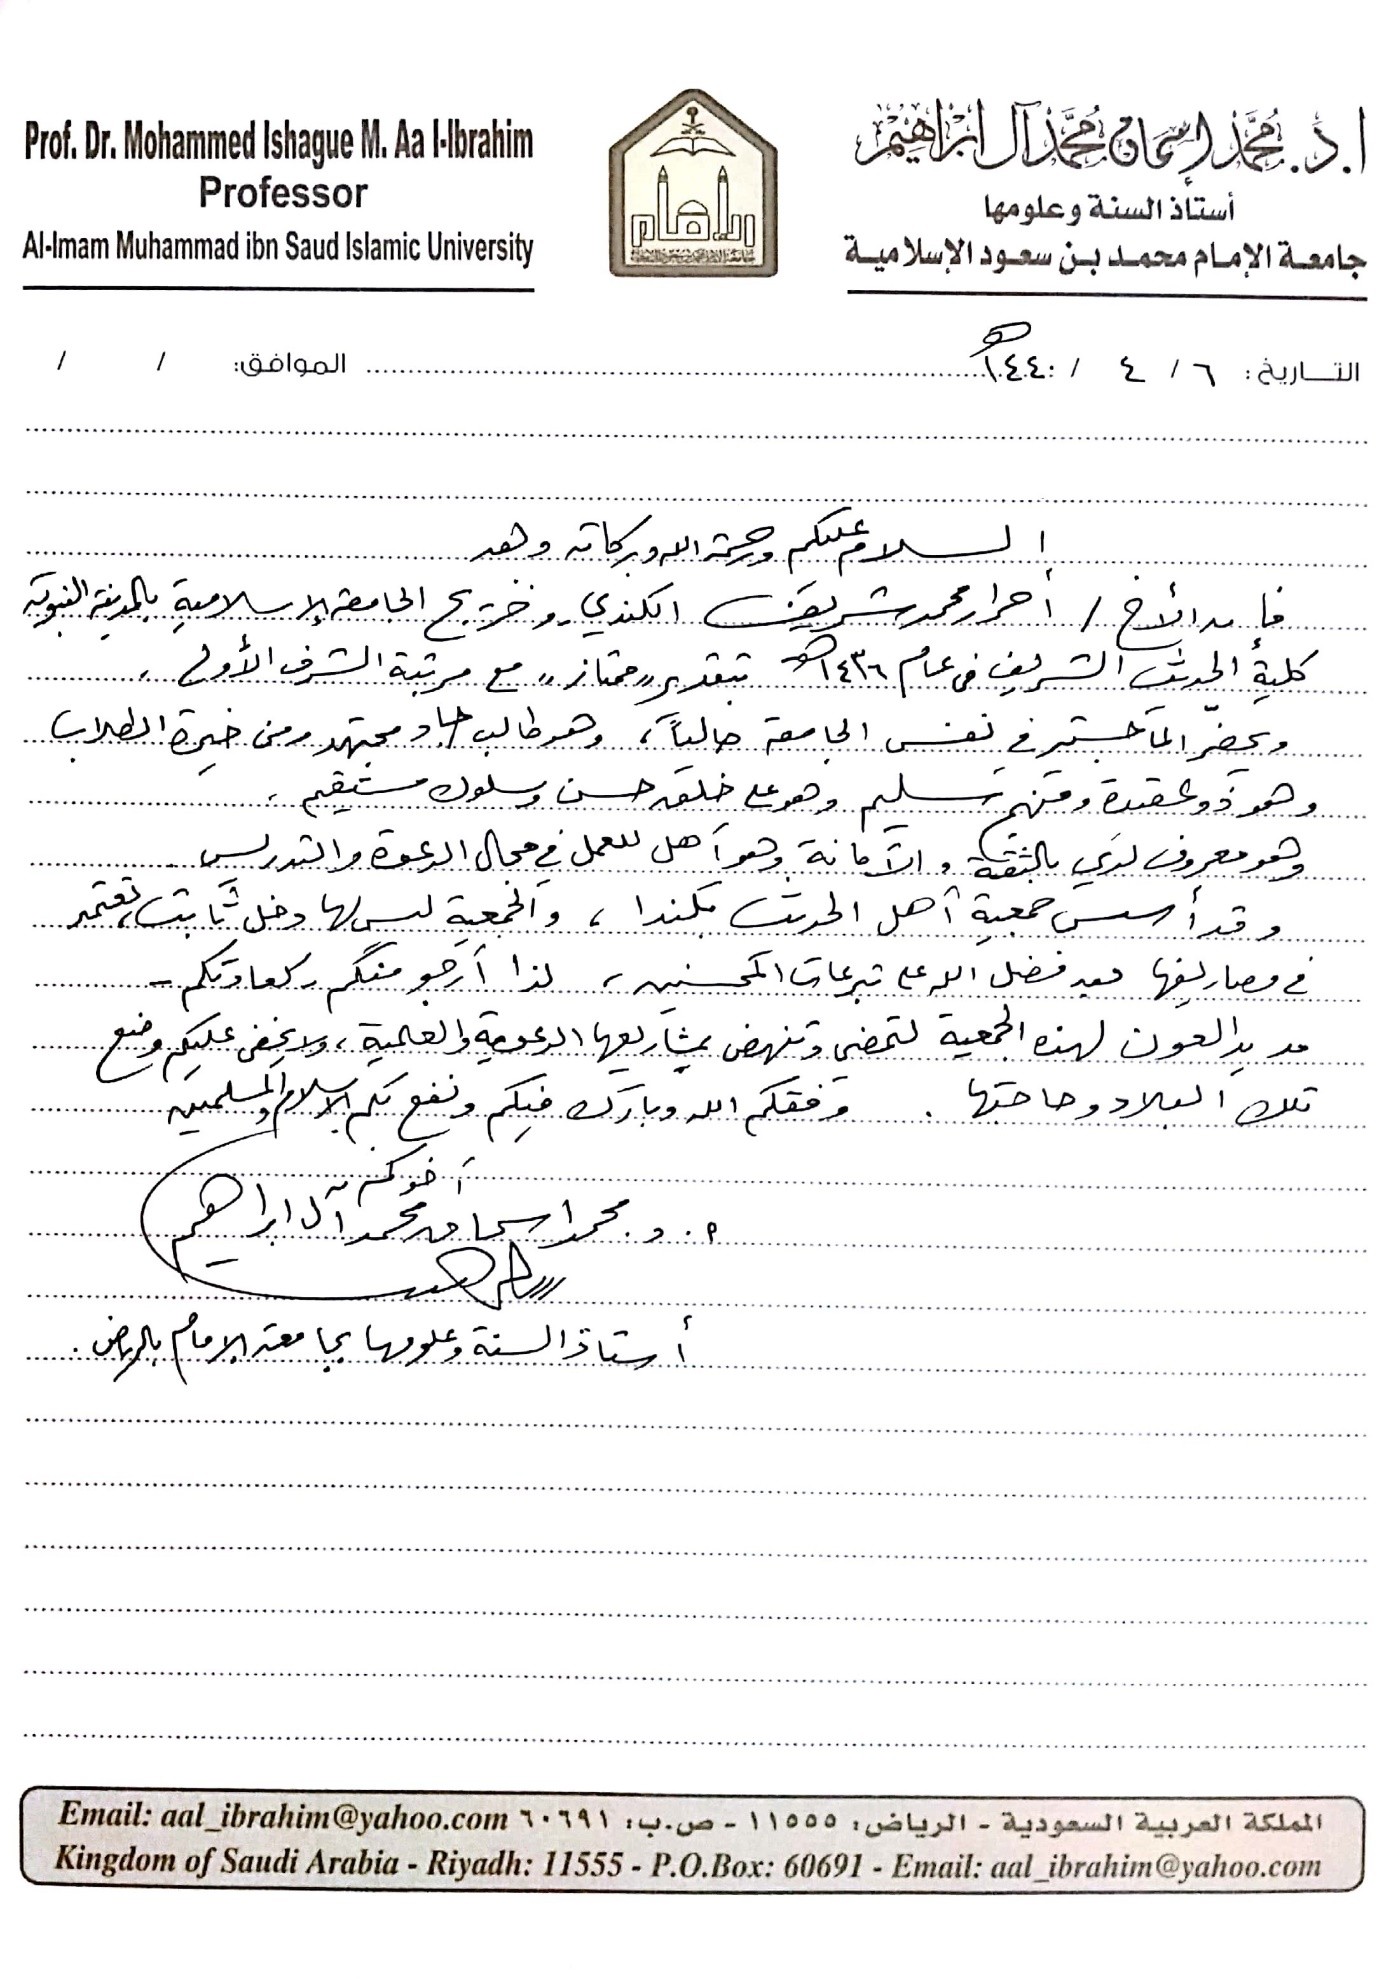 Prof. Dr. Mohammed Ishague M. Aa l-Ibrahim
Professor
Al-Imam Muhammad ibn Saud Islamic University
ا.د. محمد إسحاق محمد آل إبراهيم
أستاذ السنة وعلومها
جامعة الإمام محمد بن سعود الإسلامية
التاريخ: ٦ / ٤ / ١٤٤٠هـ الموافق: / /
السلام عليكم ورحمة الله وبركاته وبعد
فإن الأخ / أحرار محمد شريف الكندي وخريج الجامعة الإسلامية بالمدينة النبوية
كلية الحديث الشريف في عام ١٤٣٦هـ بتقدير "ممتاز" مع مرتبة الشرف الأولى،
ويحضّر الماجستير في نفس الجامعة حالياً، وهو طالب جاد مجتهد ومن خيرة الطلاب
وهو ذو عقيدة ومنهج سليم وهو على خلق حسن وسلوك مستقيم.
وهو معروف لدي بالثقة والأمانة وهو أهل للعمل في مجال الدعوة والتدريس.
وقد أسس جمعية أهل الحديث بكندا، والجمعية ليس لها دخل ثابت، تعتمد
في مصاريفها بعد فضل الله على تبرعات المحسنين، لذا أرجو منكم سعادتكم -
مد يد العون لهذه الجمعية لتمضي وتنهض بمشاريعها الدعوية والعلمية، ولا يخفى عليكم وضع
تلك البلاد وحاجتها. وفقكم الله وبارك فيكم ونفع بكم الإسلام والمسلمين
أخوكم
أ. د. محمد إسحاق محمد آل إبراهيم
أستاذ السنة وعلومها بجامعة الإمام بالرياض.
المملكة العربية السعودية - الرياض: ١١٥٥٥ - ص.ب: ٦٠٦٩١ Email: aal_ibrahim@yahoo.com
Kingdom of Saudi Arabia - Riyadh: 11555 - P.O.Box: 60691 - Email: aal_ibrahim@yahoo.com